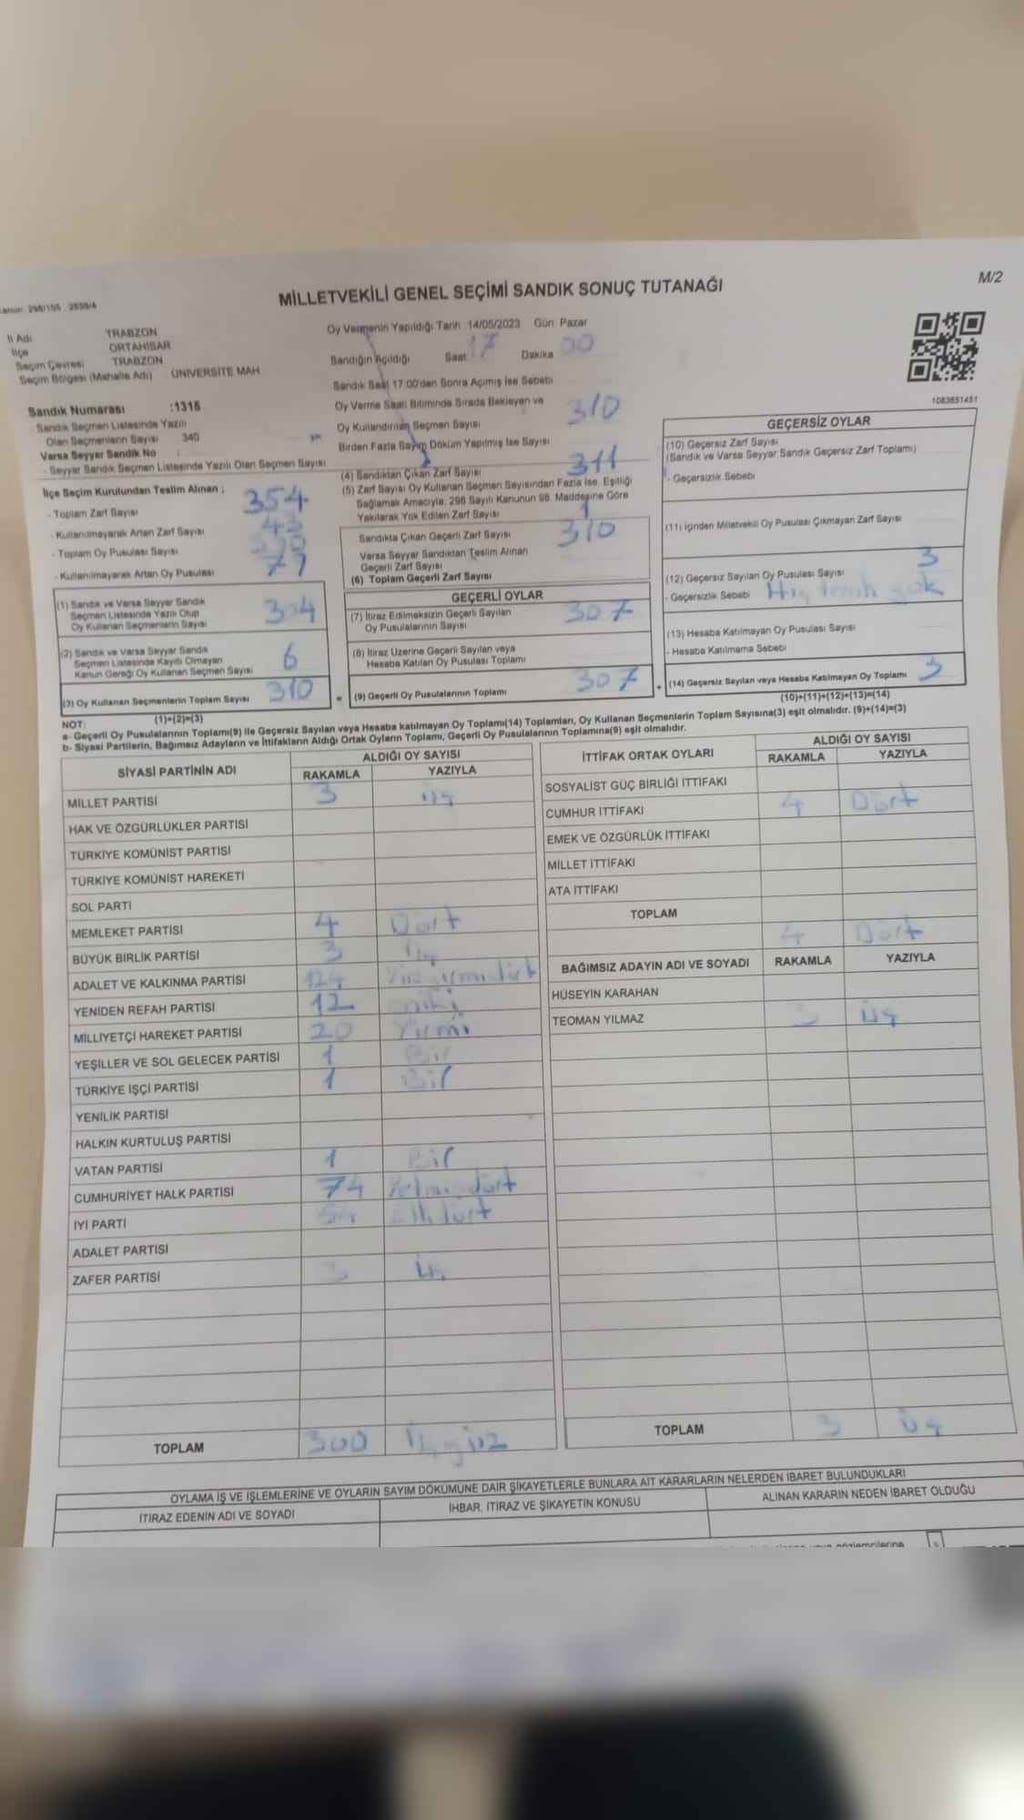 M/2
MİLLETVEKİLİ GENEL SEÇİMİ SANDIK SONUÇ TUTANAĞI
İl Adı TRABZON
İlçe ORTAHİSAR
Seçim Çevresi TRABZON
Seçim Bölgesi (Mahalle Adı) ÜNİVERSİTE MAH
Oy Vermenin Yapıldığı Tarih :14/05/2023 Gün: Pazar
Sandığın Açıldığı Saat 17 Dakika 00
Sandık Saat 17:00'den Sonra Açımış İse Sebebi
1083651451
Sandık Numarası :1315
Sandık Seçmen Listesinde Yazılı
Olan Seçmenlerin Sayısı 340
Varsa Seyyar Sandık No :
- Seyyar Sandık Seçmen Listesinde Yazılı Olan Seçmen Sayısı
Oy Verme Saati Bitiminde Sırada Bekleyen ve
Oy Kullandırılan Seçmen Sayısı 310
Birden Fazla Sayım Döküm Yapılmış İse Sayısı
İlçe Seçim Kurulundan Teslim Alınan ;
- Toplam Zarf Sayısı 354
- Kullanılmayarak Artan Zarf Sayısı 43
- Toplam Oy Pusulası Sayısı
- Kullanılmayarak Artan Oy Pusulası 77
(1) Sandık ve Varsa Seyyar Sandık
Seçmen Listesinde Yazılı Olup
Oy Kullanan Seçmenlerin Sayısı 304
(2) Sandık ve Varsa Seyyar Sandık
Seçmen Listesinde Kayıtlı Olmayan
Kanun Gereği Oy Kullanan Seçmen Sayısı 6
(3) Oy Kullanan Seçmenlerin Toplam Sayısı 310
(1)+(2)=(3)
(4) Sandıktan Çıkan Zarf Sayısı 311
(5) Zarf Sayısı Oy Kullanan Seçmen Sayısından Fazla İse, Eşitliği
Sağlamak Amacıyla, 298 Sayılı Kanunun 98. Maddesine Göre
Yakılarak Yok Edilen Zarf Sayısı 1
Sandıkta Çıkan Geçerli Zarf Sayısı 310
Varsa Seyyar Sandıktan Teslim Alınan
Geçerli Zarf Sayısı
(6) Toplam Geçerli Zarf Sayısı
GEÇERLİ OYLAR
(7) İtiraz Edilmeksizin Geçerli Sayılan
Oy Pusulalarının Sayısı 307
(8) İtiraz Üzerine Geçerli Sayılan veya
Hesaba Katılan Oy Pusulası Toplamı
= (9) Geçerli Oy Pusulalarının Toplamı 307
GEÇERSİZ OYLAR
(10) Geçersiz Zarf Sayısı
(Sandık ve Varsa Seyyar Sandık Geçersiz Zarf Toplamı)
- Geçersizlik Sebebi
(11) İçinden Milletvekili Oy Pusulası Çıkmayan Zarf Sayısı
(12) Geçersiz Sayılan Oy Pusulası Sayısı 3
- Geçersizlik Sebebi
(13) Hesaba Katılmayan Oy Pusulası Sayısı
- Hesaba Katılmama Sebebi
+ (14) Geçersiz Sayılan veya Hesaba Katılmayan Oy Toplamı 3
(10)+(11)+(12)+(13)=(14)
NOT:
a- Geçerli Oy Pusulalarının Toplamı(9) ile Geçersiz Sayılan veya Hesaba katılmayan Oy Toplamı(14) Toplamları, Oy Kullanan Seçmenlerin Toplam Sayısına(3) eşit olmalıdır. (9)+(14)=(3)
b- Siyasi Partilerin, Bağımsız Adayların ve İttifakların Aldığı Ortak Oyların Toplamı, Geçerli Oy Pusulalarının Toplamına(9) eşit olmalıdır.
SİYASİ PARTİNİN ADI ALDIĞI OY SAYISI
RAKAMLA YAZIYLA
MİLLET PARTİSİ 3 üç
HAK VE ÖZGÜRLÜKLER PARTİSİ
TÜRKİYE KOMÜNİST PARTİSİ
TÜRKİYE KOMÜNİST HAREKETİ
SOL PARTİ
MEMLEKET PARTİSİ 4 Dört
BÜYÜK BİRLİK PARTİSİ 3 üç
ADALET VE KALKINMA PARTİSİ 124 Yüzyirmidört
YENİDEN REFAH PARTİSİ 12 oniki
MİLLİYETÇİ HAREKET PARTİSİ 20 Yirmi
YEŞİLLER VE SOL GELECEK PARTİSİ 1 Bir
TÜRKİYE İŞÇİ PARTİSİ 1 Bir
YENİLİK PARTİSİ
HALKIN KURTULUŞ PARTİSİ
VATAN PARTİSİ 1 Bir
CUMHURİYET HALK PARTİSİ 74 Yetmişdört
İYİ PARTİ 54 Ellidört
ADALET PARTİSİ
ZAFER PARTİSİ 3 üç
TOPLAM 300 üçyüz
İTTİFAK ORTAK OYLARI ALDIĞI OY SAYISI
RAKAMLA YAZIYLA
SOSYALİST GÜÇ BİRLİĞİ İTTİFAKI
CUMHUR İTTİFAKI 4 Dört
EMEK VE ÖZGÜRLÜK İTTİFAKI
MİLLET İTTİFAKI
ATA İTTİFAKI
TOPLAM 4 Dört
BAĞIMSIZ ADAYIN ADI VE SOYADI RAKAMLA YAZIYLA
HÜSEYİN KARAHAN
TEOMAN YILMAZ 3 üç
TOPLAM 3 üç
OYLAMA İŞ VE İŞLEMLERİNE VE OYLARIN SAYIM DÖKÜMÜNE DAİR ŞİKAYETLERLE BUNLARA AİT KARARLARIN NELERDEN İBARET BULUNDUKLARI
İTİRAZ EDENİN ADI VE SOYADI İHBAR, İTİRAZ VE ŞİKAYETİN KONUSU ALINAN KARARIN NEDEN İBARET OLDUĞU